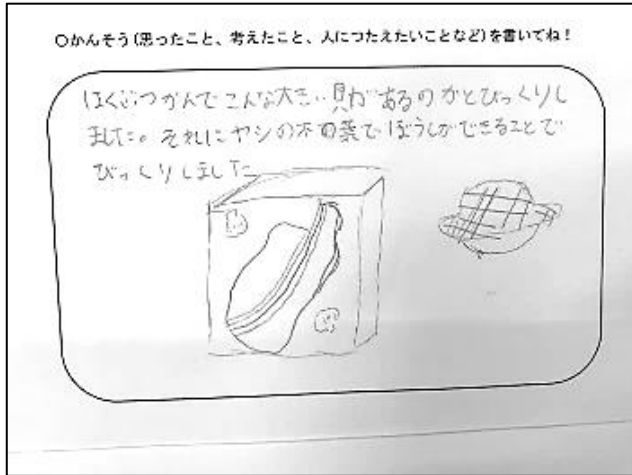 ○かんそう（思ったこと、考えたこと、人につたえたいことなど）を書いてね！
はくぶつかんでこんな大きい貝があるのかとびっくりし
ました。それにヤシの木の葉でぼうしができることで
びっくりしました